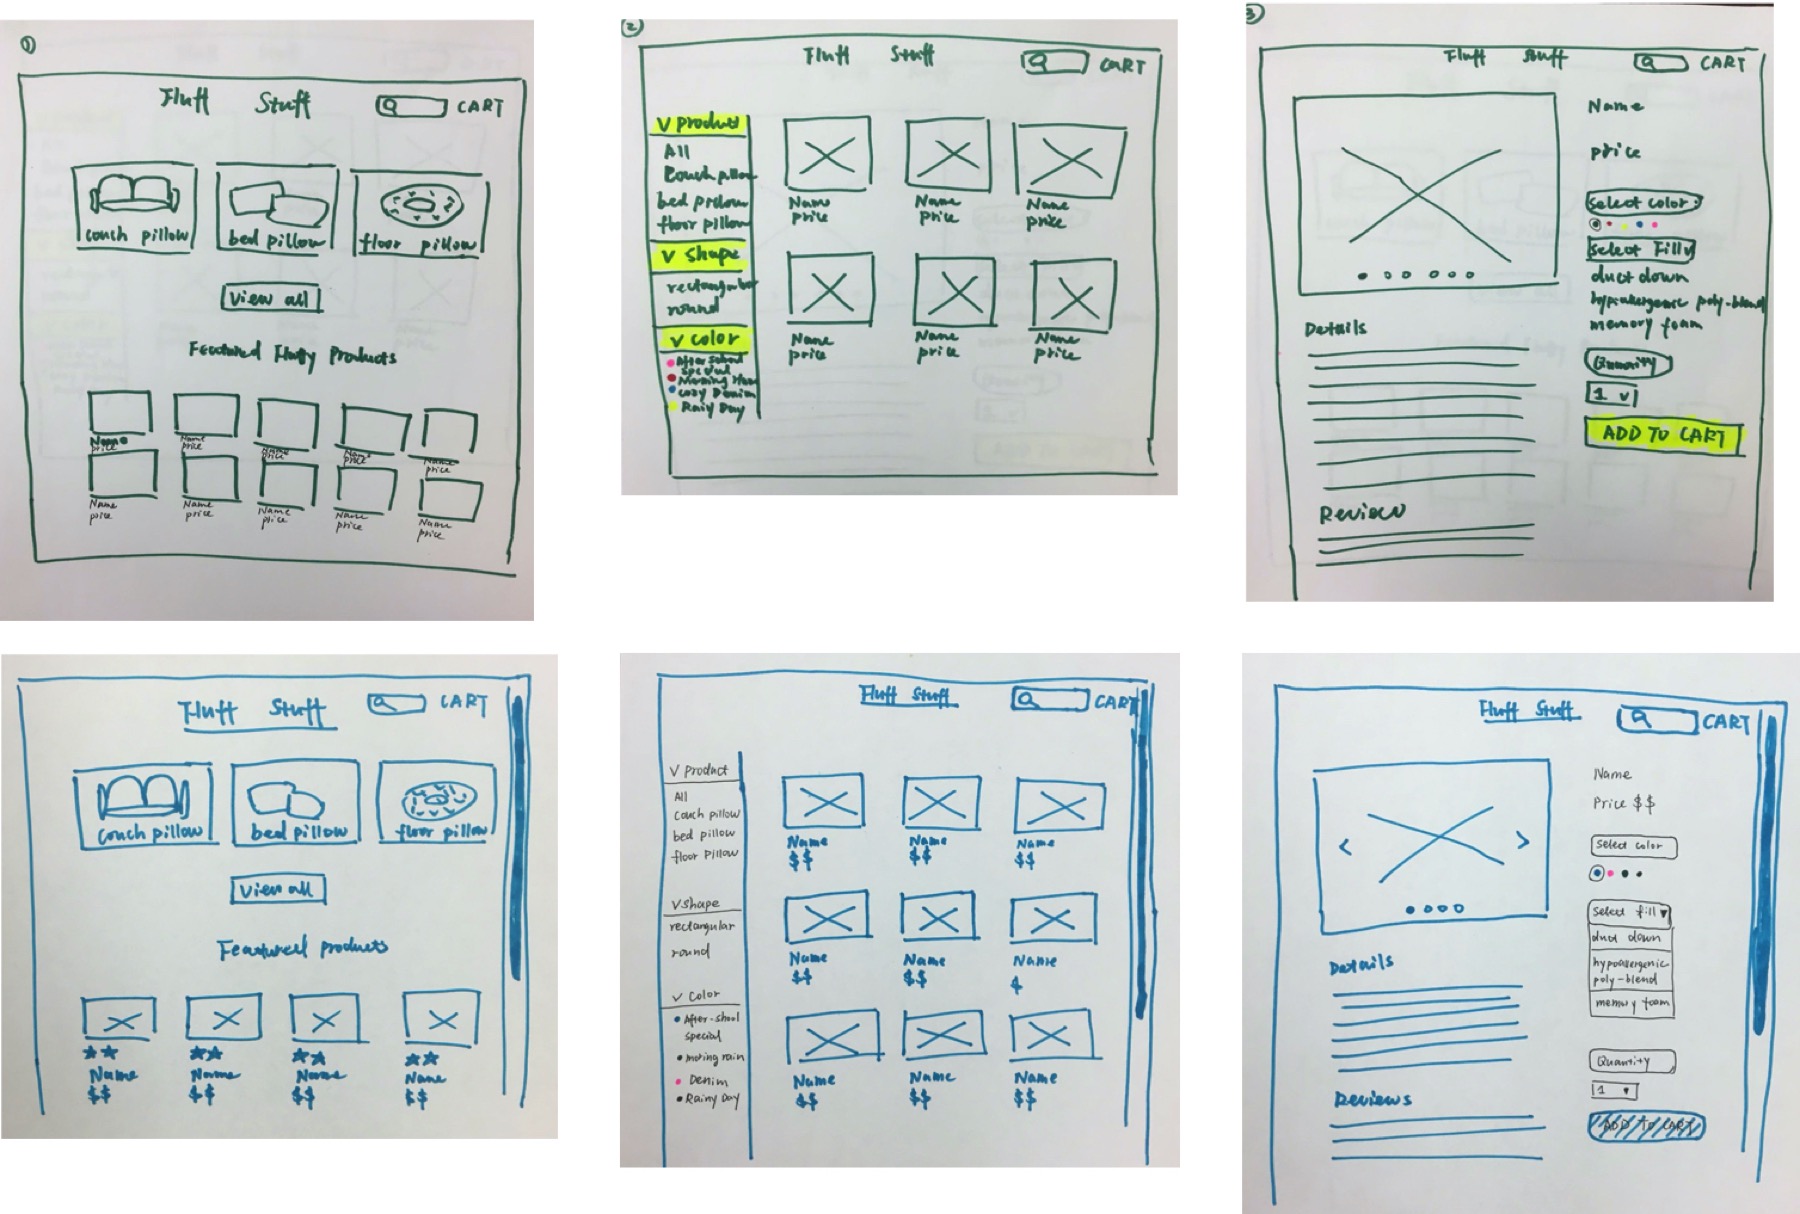 1
Fluff Stuff CART
couch pillow bed pillow floor pillow
View all
Featured Fluffy Products
Name Name Name Name Name
price price price price price
Name Name Name Name Name
price price price price price
2
Fluff Stuff CART
V product
All
Couch pillow
bed pillow
floor pillow
V shape
rectangular
round
V color
After School
special
Cozy Denim
Rainy Day
Name Name Name
price price price
Name Name Name
price price price
3
Fluff Stuff CART
Name
price
select color
select Fill
duct down
hypoallergenic poly-blend
memory foam
Quantity
1 v
ADD TO CART
Details
Review
Fluff Stuff CART
couch pillow bed pillow floor pillow
View all
Featured products
Name Name Name Name
$$ $$ $$ $$
Fluff Stuff CART
V Product
All
Couch pillow
bed pillow
floor Pillow
V shape
rectangular
round
V Color
After-shool
special
Denim
Rainy Day
Name Name Name
$$ $$ $$
Name Name Name
$$ $$ $
Name Name Name
$$ $$ $$
Fluff Stuff CART
< >
Name
Price $$
Select color
Select fill
duct down
hypoallergenic
poly-blend
memory foam
Quantity
1
ADD TO CART
Details
Reviews